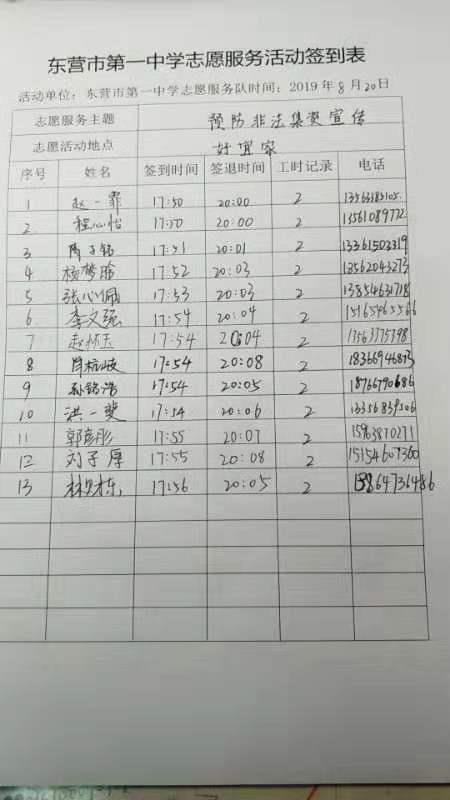 东营市第一中学志愿服务活动签到表
活动单位：东营市第一中学志愿服务队时间：2019年8月20日
志愿服务主题 预防非法集资宣传
志愿活动地点 好宜家
序号 姓名 签到时间 签退时间 工时记录 电话
1 赵一霏 17:50 20:00 2
2 程心怡 17:50 20:00 2 13561089772
3 17:51 20:01 2 13361503319
4 杨梦瑶 17:52 20:03 2 13562043273
5 张心佩 17:53 20:03 2 13854631718
6 李文强 17:54 20:04 2
7 赵怀玉 17:54 20:04 2 13563775798
8 17:54 20:08 2 18366946873
9 孙铭浩 17:54 20:05 2 18766790686
10 洪一斐 17:54 20:06 2 13356839506
11 郭彦彤 17:55 20:07 2 15963870271
12 刘子厚 17:55 20:08 2 15154607360
13 17:56 20:05 2 13864736486